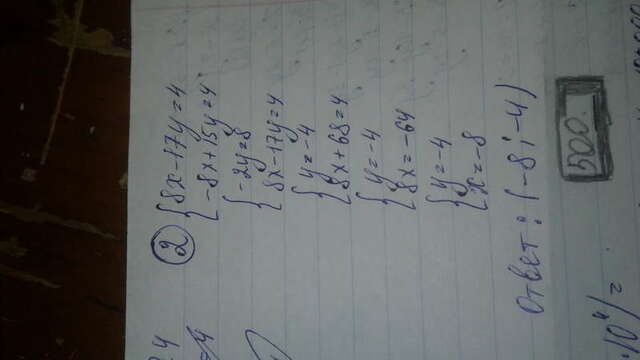 24
=4
② { 8x-17y=4
-8x+15y=4
{ -2y=8
8x-17y=4
{ y=-4
8x+68=4
{ y=-4
8x=-64
{ y=-4
x=-8
Ответ: (-8; -4)
500.
·10⁴)=